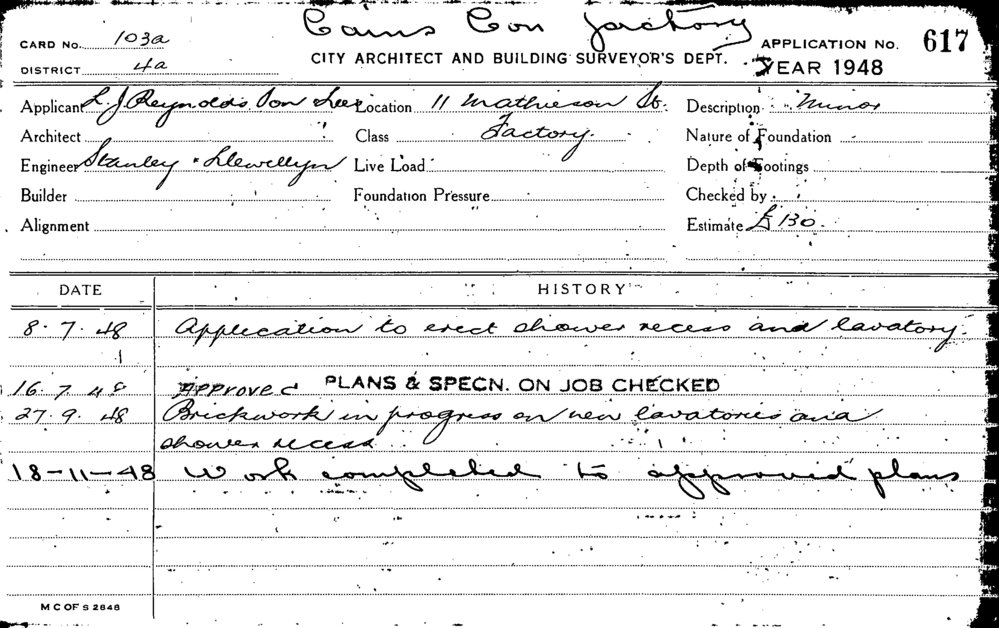 Cains Con factory
CARD No. 103a
DISTRICT 4a
CITY ARCHITECT AND BUILDING SURVEYOR'S DEPT.
APPLICATION NO. 617
YEAR 1948
Applicant L. J. Reynolds Son Location 11 Mathieson St. Description Minor
Architect Class Factory. Nature of Foundation
Engineer Stanley & Llewellyn Live Load Depth of Footings
Builder Foundation Pressure Checked by
Alignment Estimate £130.
DATE HISTORY
8.7.48 Application to erect shower recess and lavatory.
16.7.48 Approved PLANS & SPECN. ON JOB CHECKED
27.9.48 Brickwork in progress on new lavatories and
shower recess
18-11-48 Work completed to approved plans
M C OF S 2848